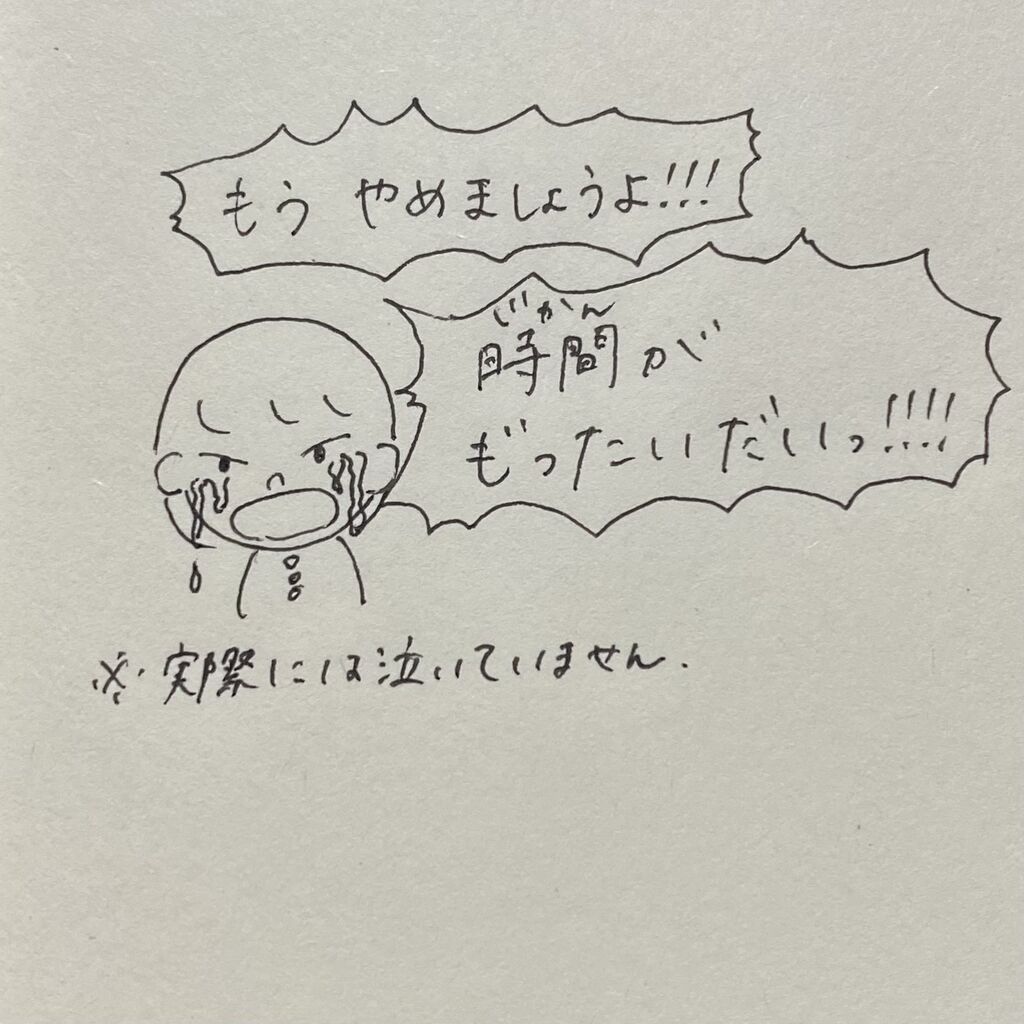 もう やめましょうよ!!!
じかん
時間が
もったいだいっ!!!!
※実際には泣いていません.